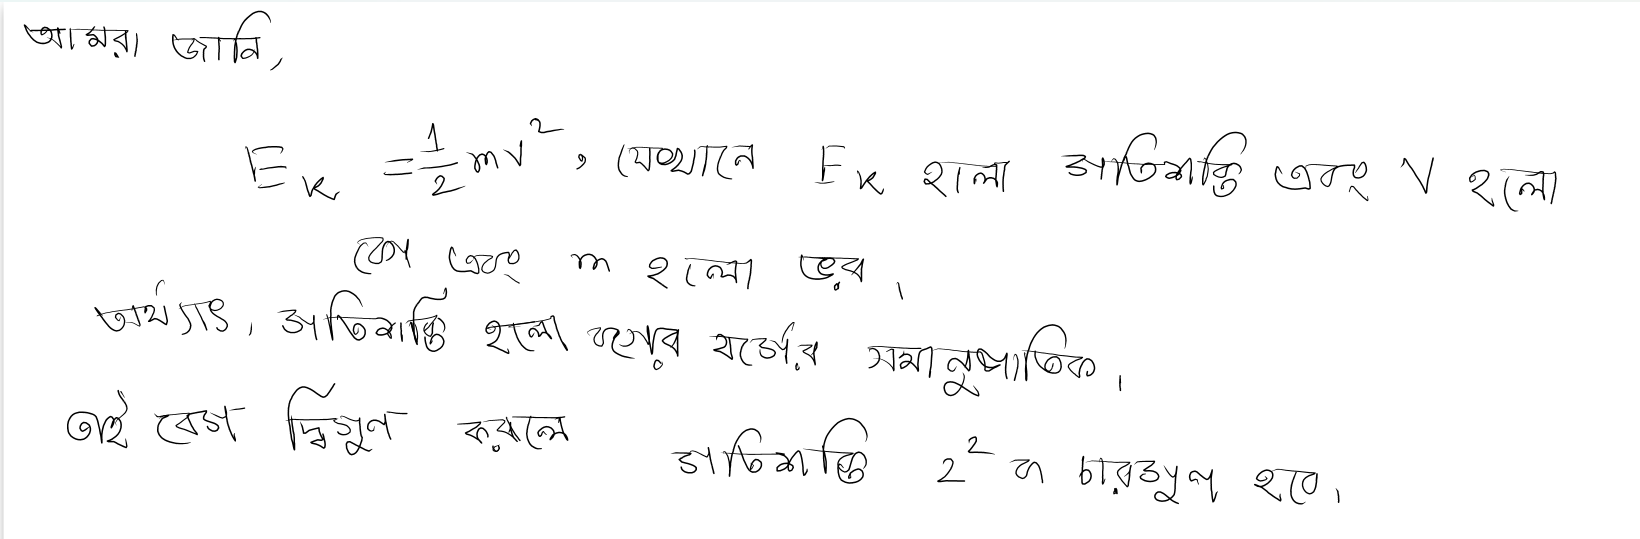 আমরা জানি,
E_k = 1/2 mv², যেখানে E_k হলো গতিশক্তি এবং v হলো
বেগ এবং m হলো ভর।
অর্থ্যাৎ, গতিশক্তি হলো বেগের বর্গের সমানুপাতিক।
তাই বেগ দ্বিগুণ করলে গতিশক্তি 2² বা চারগুণ হবে।